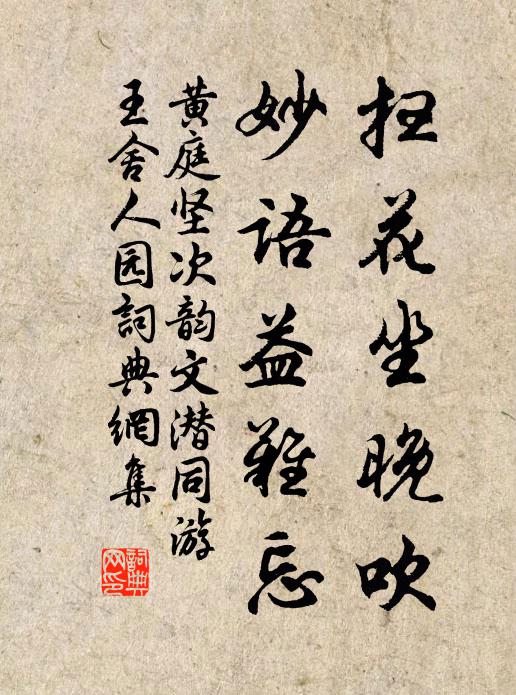 扫花坐晚吹
妙語益難忘
黄庭坚次韵文潜同游
王舍人园詞典網集
詞典网印